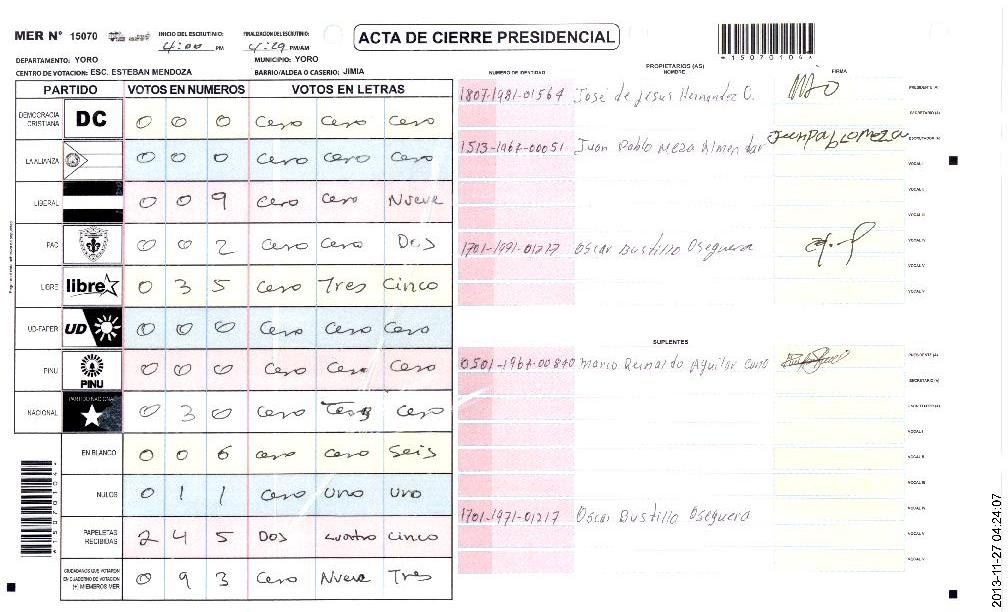 MER N° 15070 INICIO DEL ESCRUTINIO: 4:00 PM FINALIZACION DEL ESCRUTINIO: 4:29 PM/AM
ACTA DE CIERRE PRESIDENCIAL
*15070104*
DEPARTAMENTO: YORO MUNICIPIO: YORO
CENTRO DE VOTACION: ESC. ESTEBAN MENDOZA BARRIO/ALDEA O CASERIO: JIMIA
PARTIDO VOTOS EN NUMEROS VOTOS EN LETRAS
DEMOCRACIA CRISTIANA DC 0 0 0 Cero Cero Cero
LA ALIANZA 0 0 0 Cero Cero Cero
LIBERAL 0 0 9 Cero Cero Nueve
PAC 0 0 2 Cero Cero Dos
LIBRE libre 0 3 5 Cero Tres Cinco
UD-FAPER UD 0 0 0 Cero Cero Cero
PINU PINU 0 0 0 Cero Cero Cero
NACIONAL PARTIDO NACIONAL 0 3 0 Cero Cero
EN BLANCO 0 0 6 Cero Cero Seis
NULOS 0 1 1 Cero Uno Uno
PAPELETAS RECIBIDAS 2 4 5 Dos Cuatro Cinco
CIUDADANOS QUE VOTARON EN CUADERNO DE VOTACION (+) MIEMBROS MER 0 9 3 Cero Nueve Tres
PROPIETARIOS (AS)
NUMERO DE IDENTIDAD NOMBRE FIRMA
1807-1981-01564 José de Jesus Hernandez O. PRESIDENTE (A)
SECRETARIO (A)
1513-1967-00051 Juan Pablo Meza Almendar Juan Pablo Meza ESCRUTADOR (A)
VOCAL I
VOCAL II
VOCAL III
1701-1991-01217 Oscar Bustillo Oseguera VOCAL IV
VOCAL V
VOCAL V
SUPLENTES
0501-1967-00840 Mario Reinaldo Aguilar PRESIDENTE (A)
SECRETARIO (A)
ESCRUTADOR (A)
VOCAL I
VOCAL II
VOCAL III
1701-1971-01217 Oscar Bustillo Oseguera VOCAL IV
VOCAL V
VOCAL V
*15070104*
2013-11-27 04:24:07